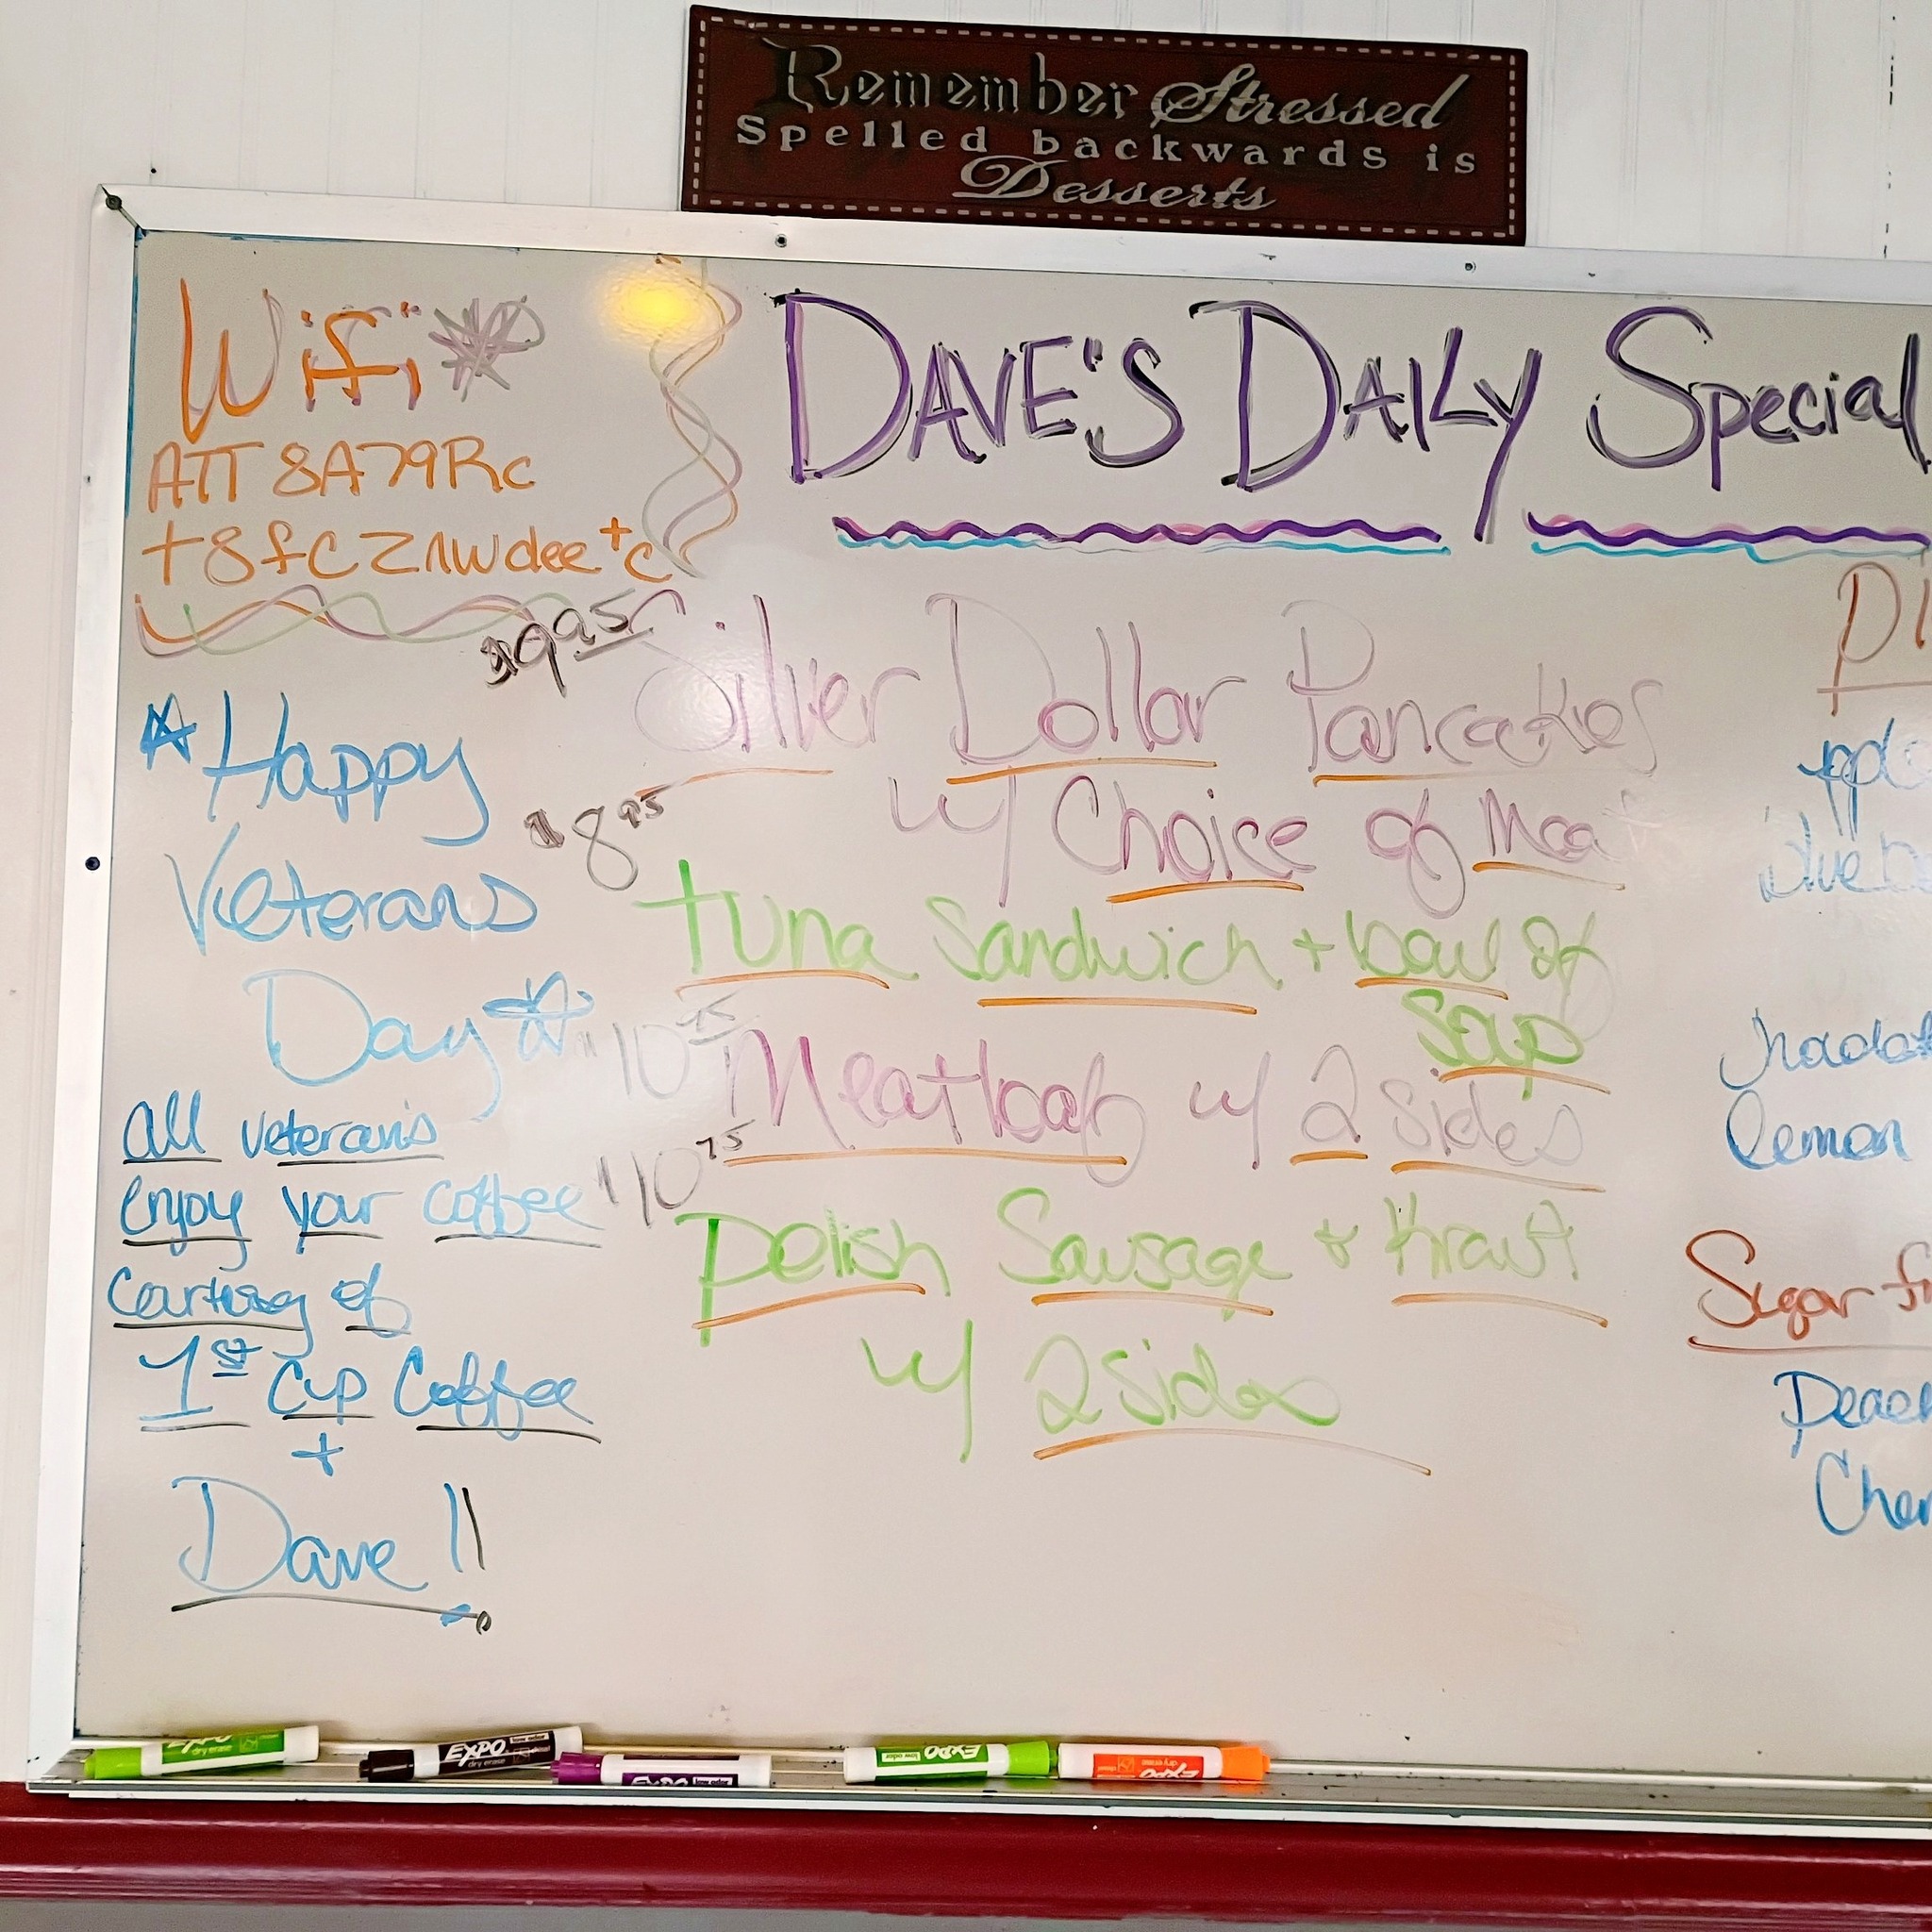 Remember Stressed
Spelled backwards is
Desserts
Wifi
ATT 8A79Rc
DAVE'S DAILY Special
$9.95 Silver Dollar Pancakes
w/ Choice of Meat
$8.95
tuna Sandwich + bowl of
Soup
Meatloaf w/ 2 Sides
$10.75
Polish Sausage + Kraut
w/ 2 Sides
Happy
Veterans
Day
all veterans
enjoy your coffee
of
1st Cup Coffee
+
Dave !!
lemon
Sugar
EXPO
dry erase
EXPO
low odor
dry erase
EXPO
low odor
EXPO
low odor
EXPO
dry erase